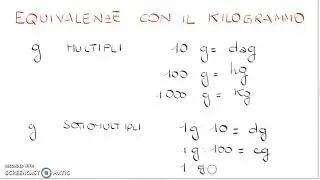 EQUIVALENZE CON IL KILOGRAMMO
g MULTIPLI 10 g = dag
100 g = hg
1000 g = Kg
g SOTTOMULTIPLI 1g 10 = dg
1g · 100 = cg
1 g
RECORDED WITH
SCREENCAST MATIC